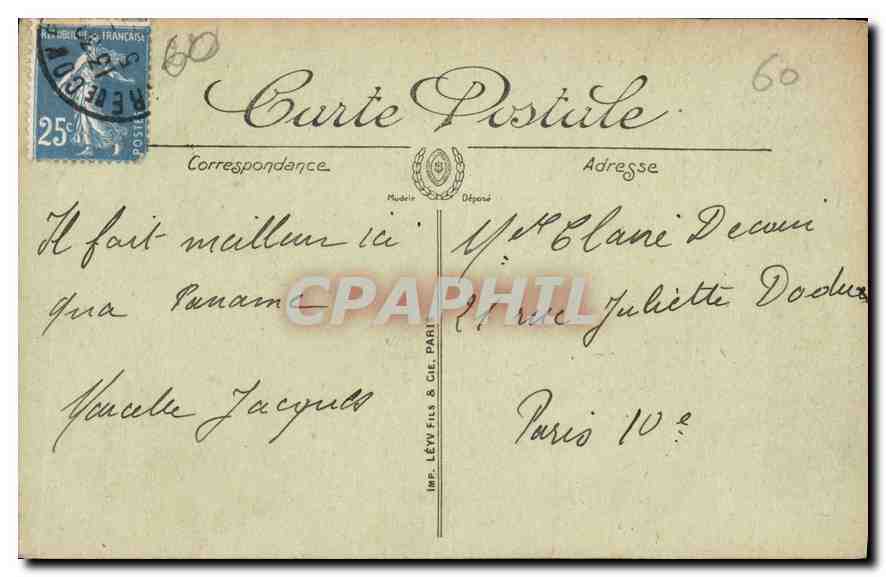 REPUBLIQUE FRANÇAISE
25c
POSTES
60
60
Carte Postale
Correspondance
Adresse
Modèle Déposé
Il fait meilleur ici
qua Paname
Marcelle Jacques
Mlle Claire
21 rue Juliette Dodu
Paris 10e
IMP. LÉVY FILS & CIE, PARIS
CPAPHIL